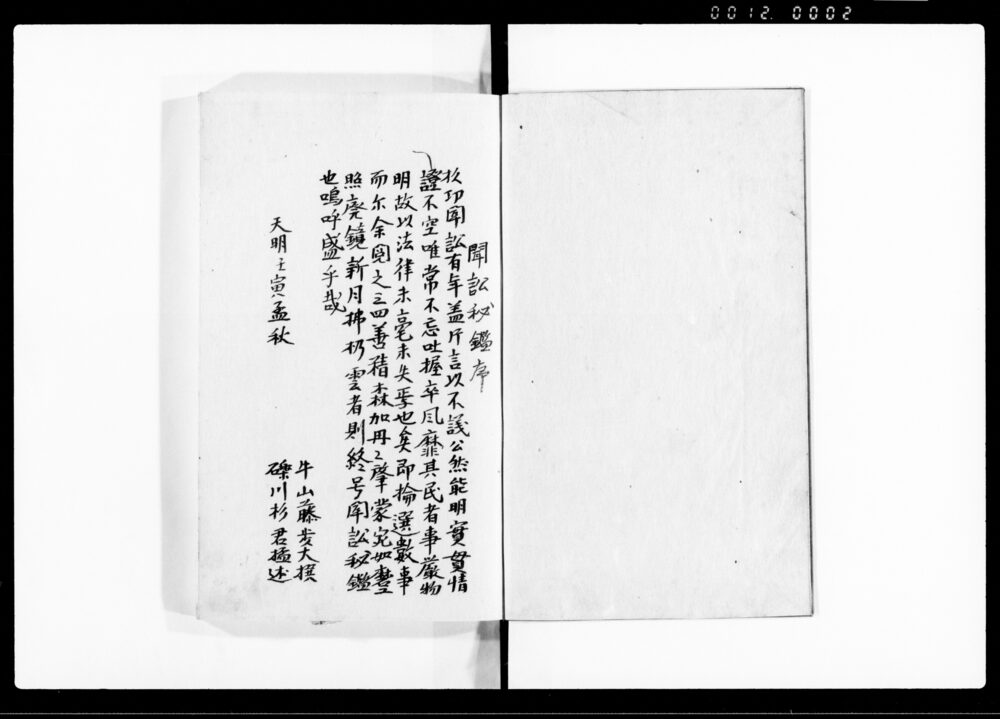 0012.0002
聞訟秘鑑序
於聞訟有年蓋片言以不議公然能明實貫情
證不空唯常不忘吐握卒風靡其民者事嚴物
明故以法律未毫未失焉也矣即掄選數事
而尓余閲之三四善積森加冊〻肇蒙宛如
照廃鏡新月拂扔雲者則終号聞訟秘鑑
也嗚呼盛乎哉
天明壬寅孟秋
牛山藤大撰
礫川杉君述